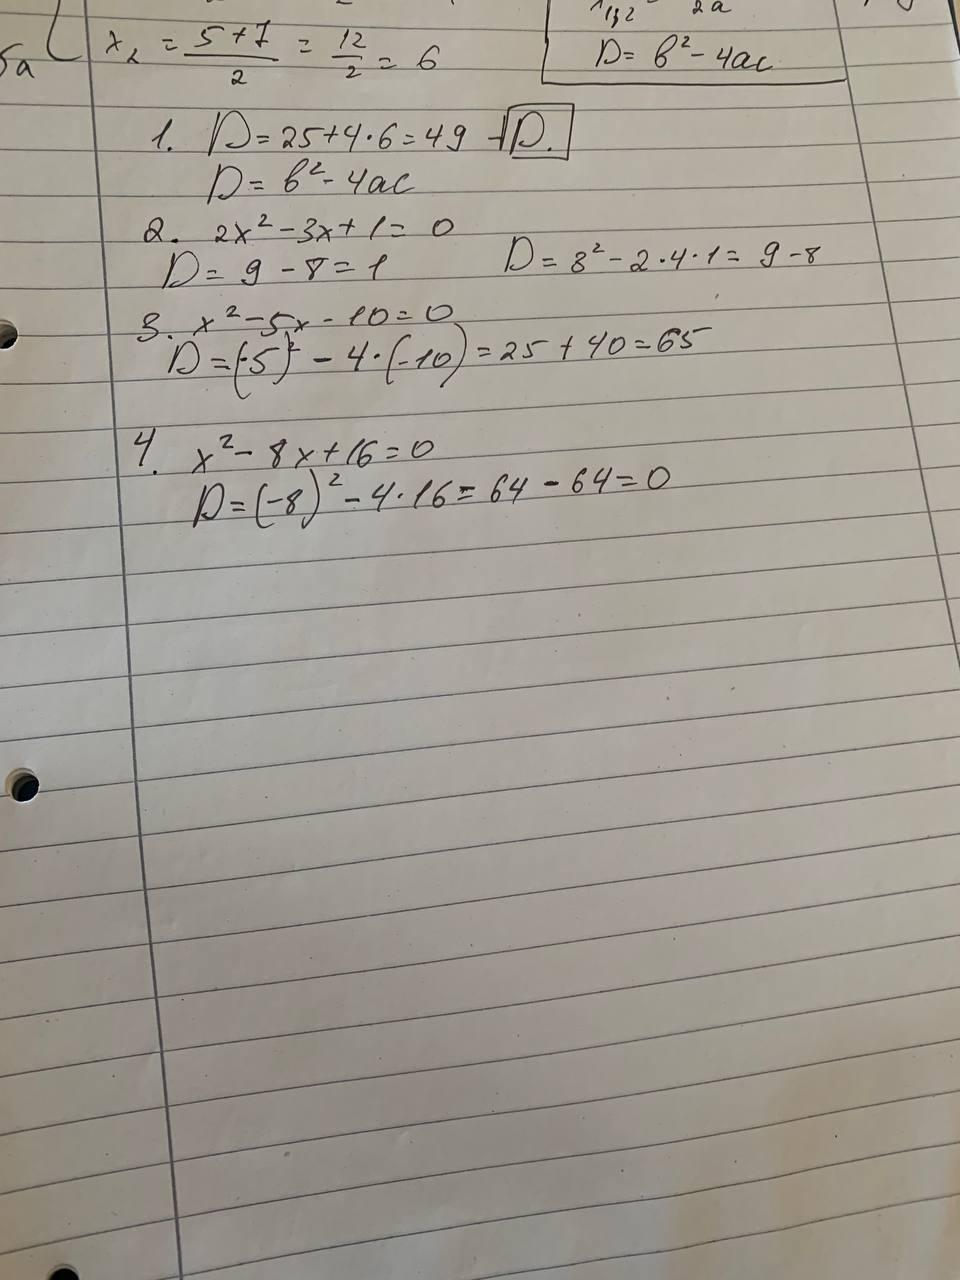 2a
x₂ = 5+7/2 = 12/2 = 6
D = b² - 4ac
5a
1. D = 25+4·6 = 49 √D.
D = b² - 4ac
2. 2x² - 3x + 1 = 0
D = 9 - 8 = 1 D = 3² - 2·4·1 = 9 - 8
3. x² - 5x - 10 = 0
D = (-5)² - 4·(-10) = 25 + 40 = 65
4. x² - 8x + 16 = 0
D = (-8)² - 4·16 = 64 - 64 = 0